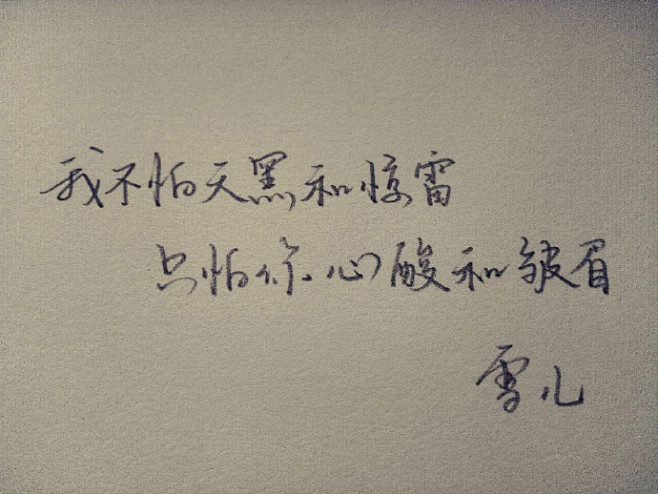 我不怕天黑和惊雷
只怕你心酸和皱眉
雪儿